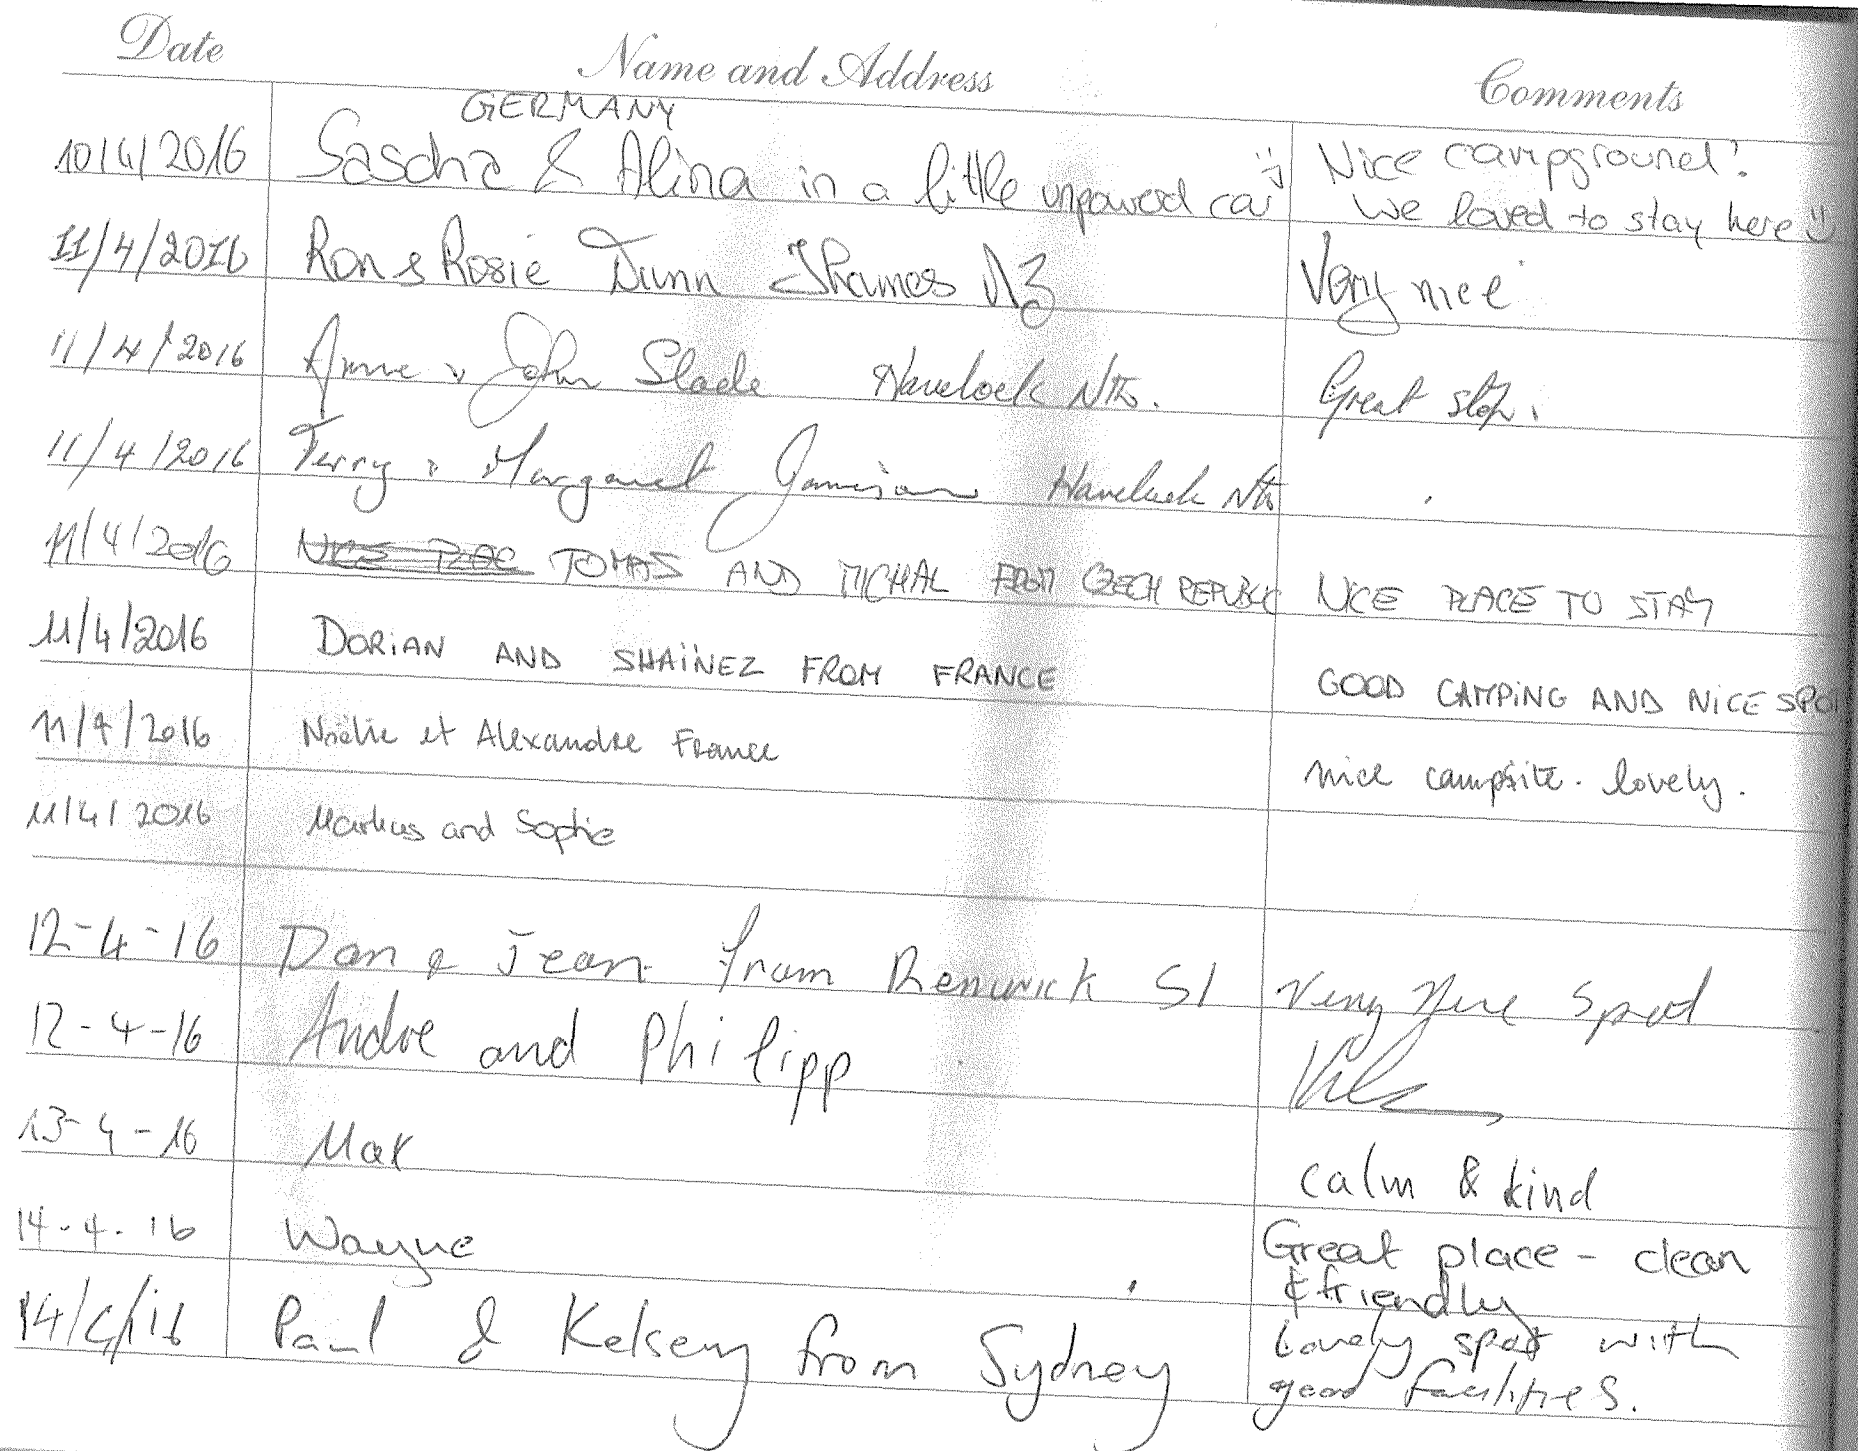 Date Name and Address Comments
GERMANY
10/4/2016 Sascha & Alina in a little unpowered car :) Nice campground!
We loved to stay here :)
11/4/2016 Ron & Rosie Dunn Thames NZ Very nice
11/4/2016 Anne & John Slade Havelock Nth. Great stop.
11/4/2016 Terry & Margaret Jamieson Havelock Nth
11/4/2016 TOMAS AND MICHAL FROM CZECH REPUBLIC NICE PLACE TO STAY
11/4/2016 DORIAN AND SHAÏNEZ FROM FRANCE GOOD CAMPING AND NICE SPOT
11/4/2016 Noëlie et Alexandre France nice campsite. lovely.
11/4/2016 Markus and Sophie
12-4-16 Dan & Jean from Renwick SI Very Nice Spot
12-4-16 Andre and Philipp
13-4-16 Max calm & kind
14.4.16 Wayne Great place - clean
& friendly
14/4/16 Paul & Kelsey from Sydney Lovely spot with
good facilities.